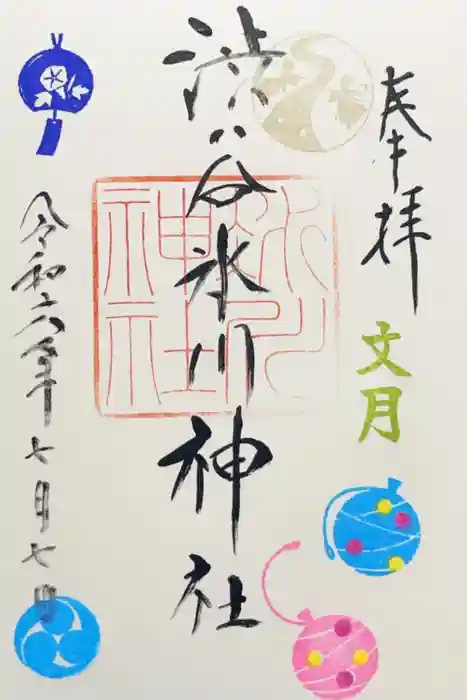 奉拝
文月
渋谷氷川神社
氷川
神社
令和六年七月七日